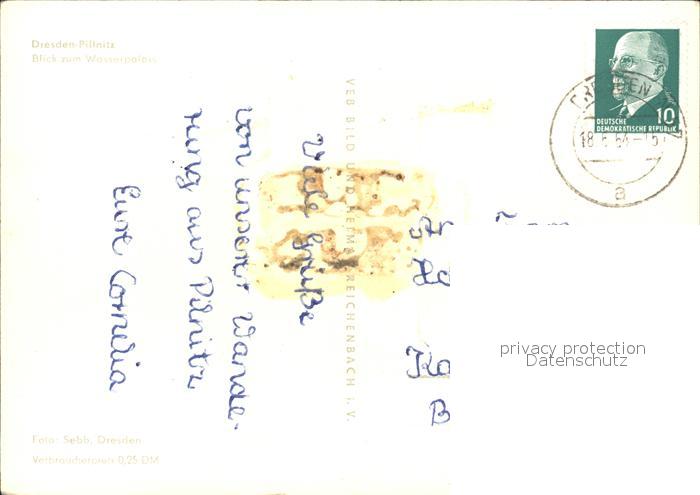 Dresden-Pillnitz
Blick zum Wasserpalais
VEB BILD UND HEIMAT REICHENBACH i. V.
Viele Grüße
von unserer Wande-
rung aus Pilnitz
Eure Cornelia
DEUTSCHE
DEMOKRATISCHE REPUBLIK
10
DRESDEN
a
Ko
B
privacy protection
Datenschutz
Foto: Sebb, Dresden
Verbraucherpreis 0,25 DM